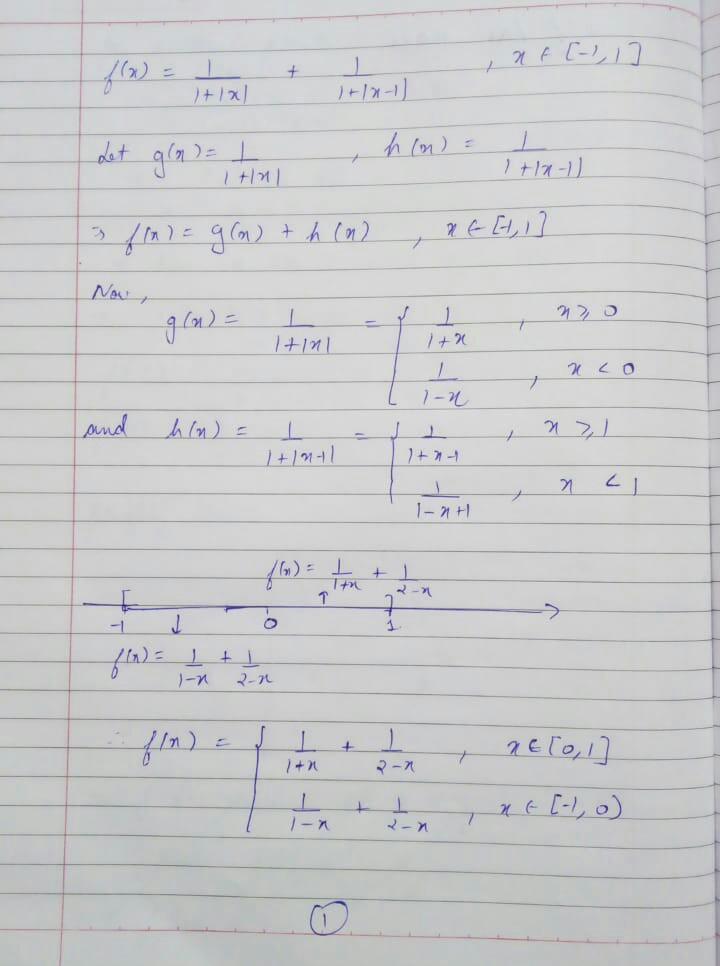 f(x) = 1/(1+|x|) + 1/(1+|x-1|) , x ∈ [-1, 1]
Let g(x) = 1/(1+|x|) , h(x) = 1/(1+|x-1|)
⇒ f(x) = g(x) + h(x) , x ∈ [-1, 1]
Now,
g(x) = 1/(1+|x|) = { 1/(1+x) , x ≥ 0
1/(1-x) , x < 0
and h(x) = 1/(1+|x-1|) = { 1/(1+x-1) , x ≥ 1
1/(1-x+1) , x < 1
f(x) = 1/(1+x) + 1/(2-x)
[ ↑ ]
-1 ↓ 0 1
f(x) = 1/(1-x) + 1/(2-x)
∴ f(x) = { 1/(1+x) + 1/(2-x) , x ∈ [0, 1]
1/(1-x) + 1/(2-x) , x ∈ [-1, 0)
1